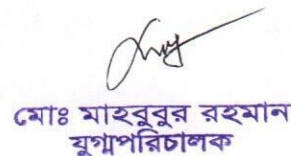 মোঃ মাহবুবুর রহমান
যুগ্মপরিচালক